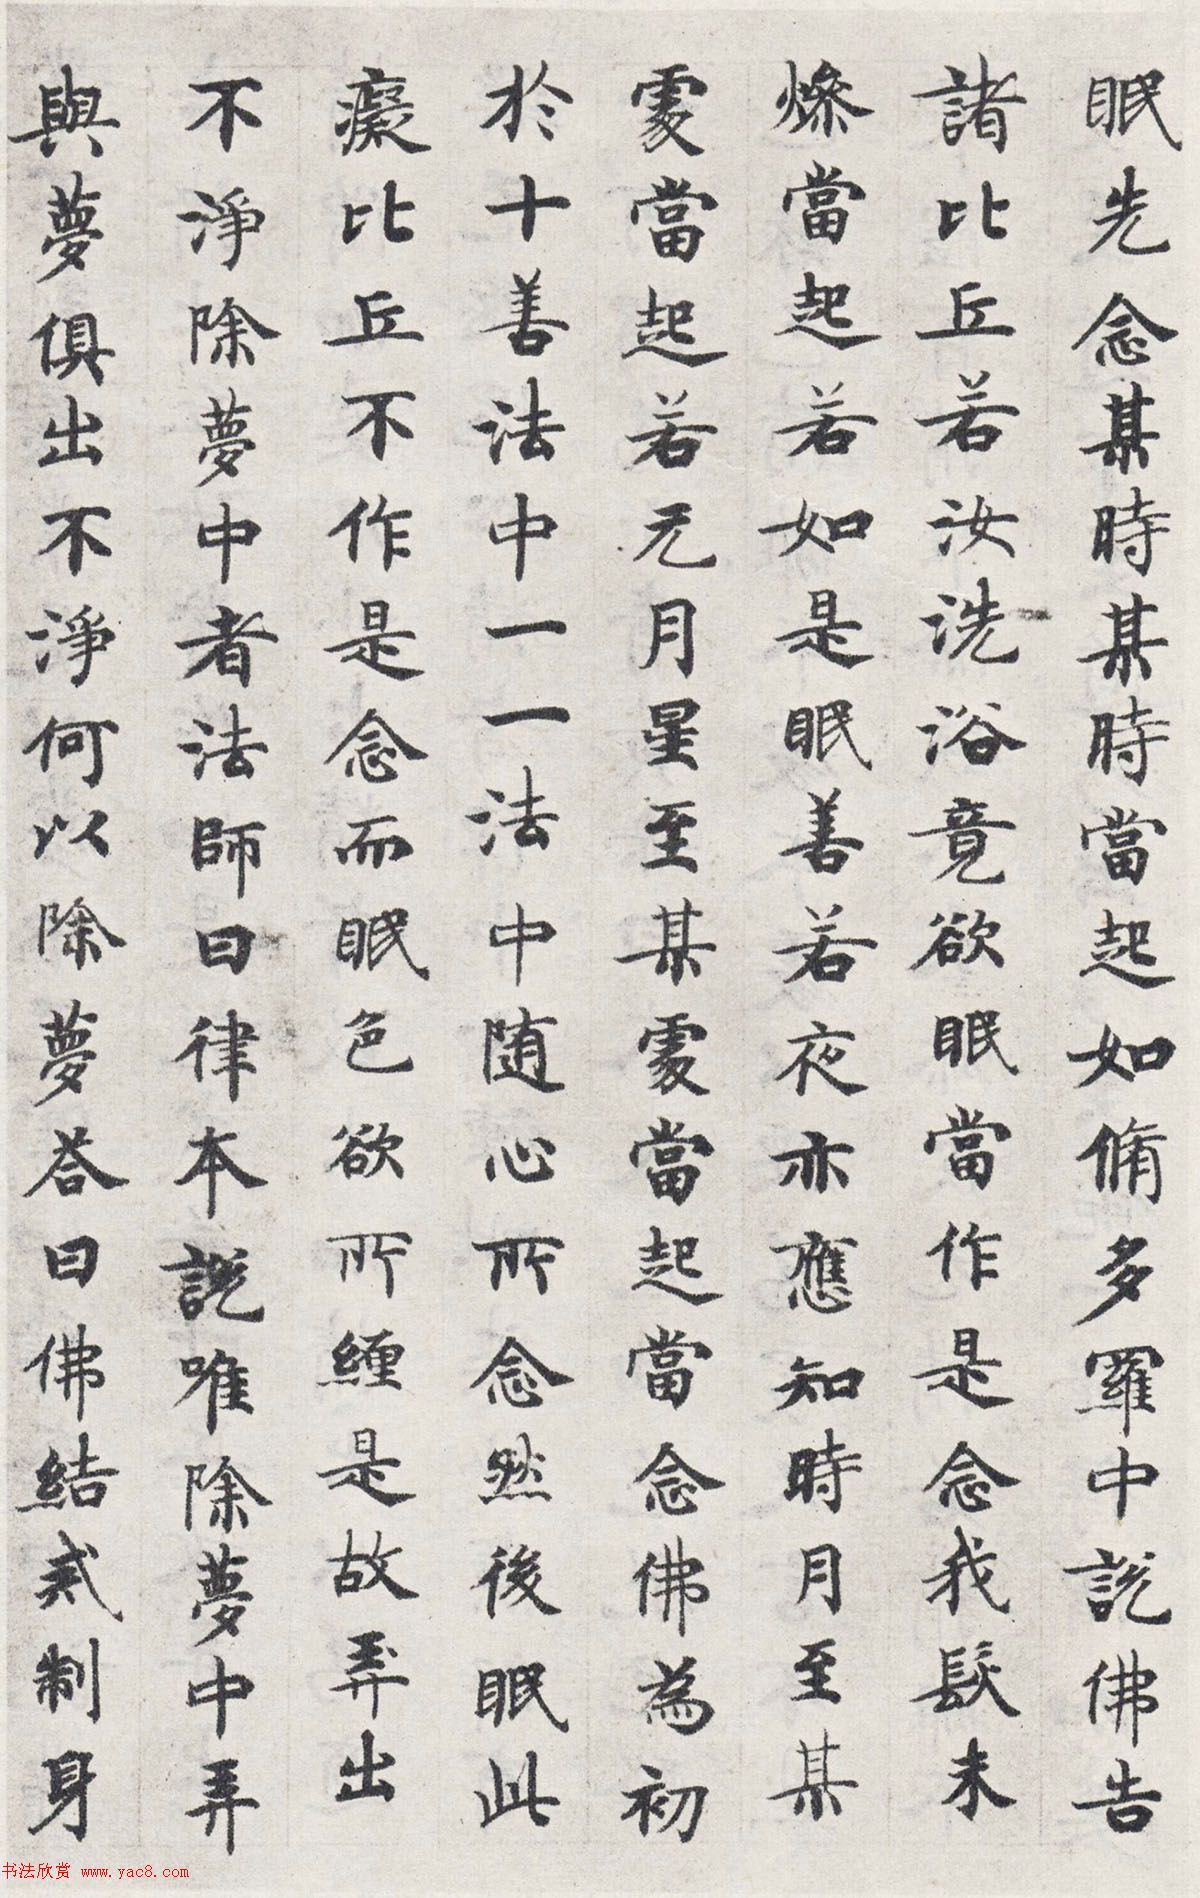 眠先念某時某時當起如脩多羅中說佛告
諸比丘若汝洗浴竟欲眠當作是念我髮未
燥當起若如是眠善若夜亦應知時月至某
處當起若无月星至某處當起當念佛為初
於十善法中一一法中随心所念然後眠此
癡比丘不作是念而眠色欲所纏是故弄出
不淨除夢中者法師曰律本說唯除夢中弄
與夢俱出不淨何以除夢荅曰佛結戒制身
书法欣赏 www.yac8.com